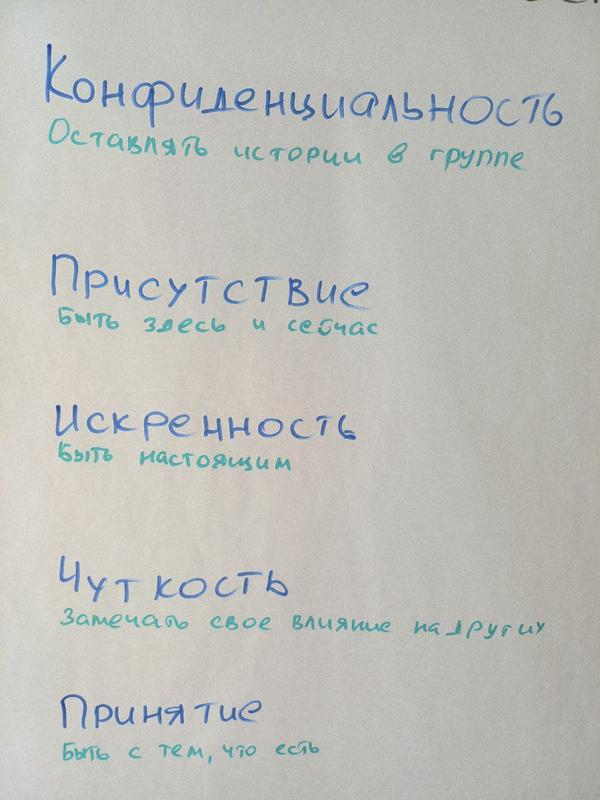 Конфиденциальность
Оставлять истории в группе
Присутствие
Быть здесь и сейчас
Искренность
Быть настоящим
Чуткость
Замечать свое влияние на других
Принятие
Быть с тем, что есть